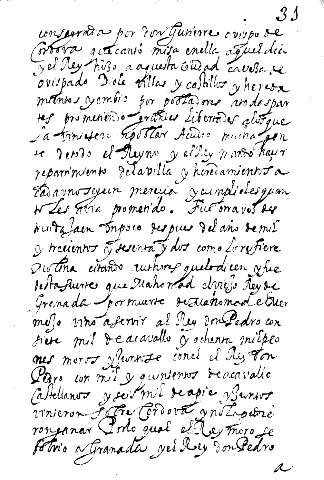 31
consagrada por Don Gutierre obispo de
Cordova que canto misa en ella aquel dia
y el Rey hizo a aquesta ciudad cavesa de
obispado Dole villas y castillos y hereda
mientos y embio por pobladores a todas par
tes prometiendo grandes libertades a los que
la viniesen a poblar Acudio mucha gen
te de todo el Reyno y el Rey mando haçer
repartimiento de la villa y heredamientos a
cada uno segun merecia y cumplioles quan
to les avia prometido. Fue otra vez des
truida Jaen un poco despues del año de mil
y trecientos y sesenta y dos como lo refiere
citando authores que lo dicen y fue
desta suerte que Mahomad el viejo Rey de
Grenada por muerte de Mahomad el Ver
mejo vino a servir al Rey don Pedro con
siete mil de acavallo y ochenta mil peo
nes moros y juntose con el el Rey Don
Pedro con mil y quinientos de acavallo
Castellanos y seis mil de apie y juntos
vinieron sobre Cordova y no la pudie
ron ganar Por lo qual el Rey moro se
bolvio a Granada y el Rey don Pedro
a